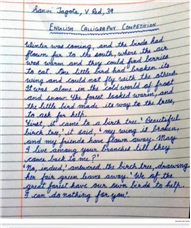 Sanvi Jagota, V Red, 39
ENGLISH CALLIGRAPHY COMPETITION
Winter was coming, and the birds had
flown far to the south, where the air
was warm and they could find berries
to eat. One little bird had broken its
wing and could not fly with the others.
It was alone in the cold world of frost
and snow. The forest looked warm, and
the little bird made its way to the trees,
to ask for help.
First, it came to a birch tree. 'Beautiful
birch tree,' it said, 'my wing is broken,
and my friends have flown away. May
I live among your branches till they
come back to me?'
'No, indeed,' answered the birch tree, drawing
her fair green leaves away. 'We of the
great forest have our own birds to help.
I can do nothing for you.'